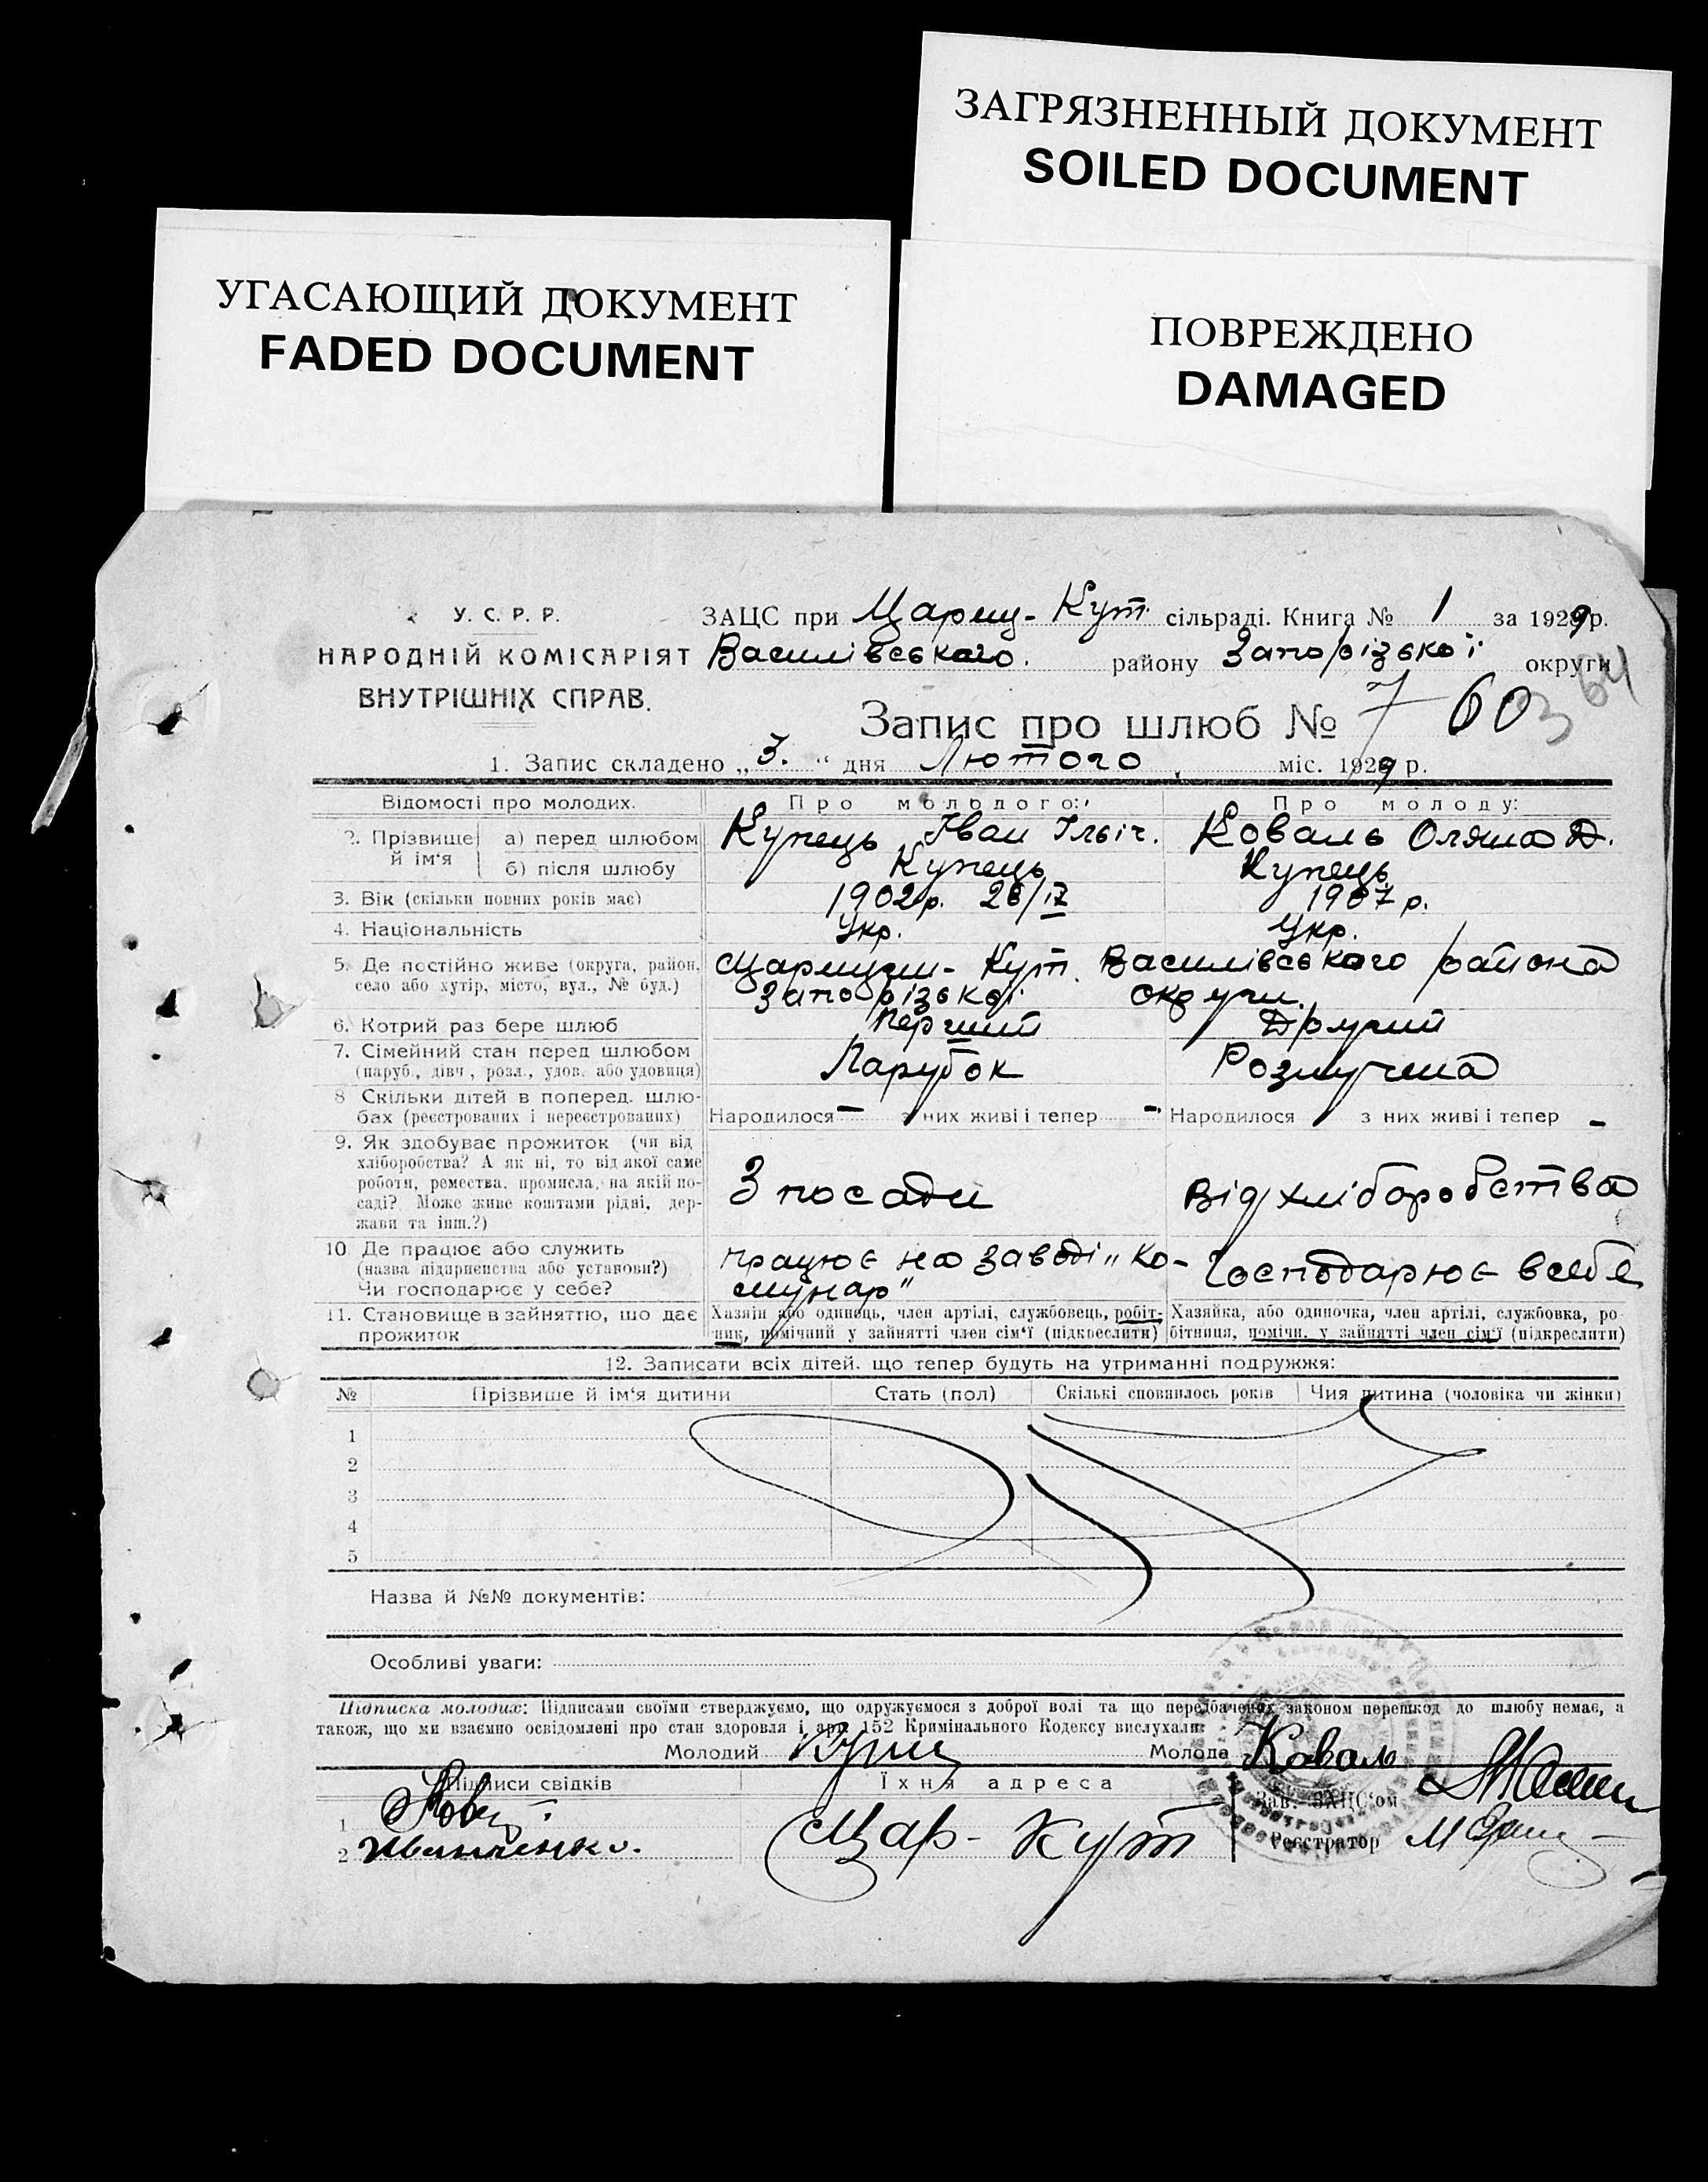 ЗАГРЯЗНЕННЫЙ ДОКУМЕНТ
SOILED DOCUMENT
УГАСАЮЩИЙ ДОКУМЕНТ
FADED DOCUMENT
ПОВРЕЖДЕНО
DAMAGED
У. С. Р. Р.
НАРОДНІЙ КОМІСАРІЯТ
ВНУТРІШНІХ СПРАВ.
ЗАЦС при Цариц-Кут сільраді. Книга № 1 за 1929 р.
Василівського. району Запорізької округи
Запис про шлюб № 7 60 64
1. Запис складено „3.“ дня Лютого міс. 1929 р.
Відомості про молодих. Про молодого: Про молоду:
2. Прізвище й ім'я а) перед шлюбом Купець Іван Ільіч. Коваль Оляна Д.
б) після шлюбу Купець Купець
3. Вік (скільки повних років має) 1902 р. 1907 р.
4. Національність Укр. Укр.
5. Де постійно живе (округа, район, Кут Василівського района
село або хутір, місто, вул., № буд.) Запорізької округи.
6. Котрий раз бере шлюб Перший Другий
7. Сімейний стан перед шлюбом
(паруб., дівч., розл., удов. або удовиця) Парубок Розлучена
8 Скільки дітей в поперед. шлю-
бах (реєстрованих і нереєстрованих) Народилося – з них живі і тепер – Народилося з них живі і тепер –
9. Як здобуває прожиток (чи від
хліборобства? А як ні, то від якої саме
роботи, ремества, промисла, на якій по-
саді? Може живе коштами рідні, дер-
жави та інш.?)
З посади від хліборобства
10 Де працює або служить
(назва підприємства або установи?)
Чи господарює у себе?
працює на заводі „Ко-
мунар“
Господарює в себе
11. Становище в зайняттю, що дає
прожиток
Хазяїн або одинець, член артілі, службовець, робіт-
ник, помічний у зайнятті член сім'ї (підкреслити)
Хазяйка, або одиночка, член артілі, службовка, ро-
бітниця, помічн. у зайнятті член сім'ї (підкреслити)
12. Записати всіх дітей, що тепер будуть на утриманні подружжя:
№ Прізвище й ім'я дитини Стать (пол) Скількі сповнилось років Чия дитина (чоловіка чи жінки)
1
2
3
4
5
Назва й №№ документів:
Особливі уваги:
Підписка молодих: Підписами своїми стверджуємо, що одружуємося з доброї волі та що передбачених законом перешкод до шлюбу немає, а
також, що ми взаємно освідомлені про стан здоровля і арт. 152 Кримінального Кодексу вислухали:
Молодий Молода Коваль
Підписи свідків Їхня адреса
Зав. ЗАЦС'ом
1
2 Иванченко. Цар-Кут Реєстратор